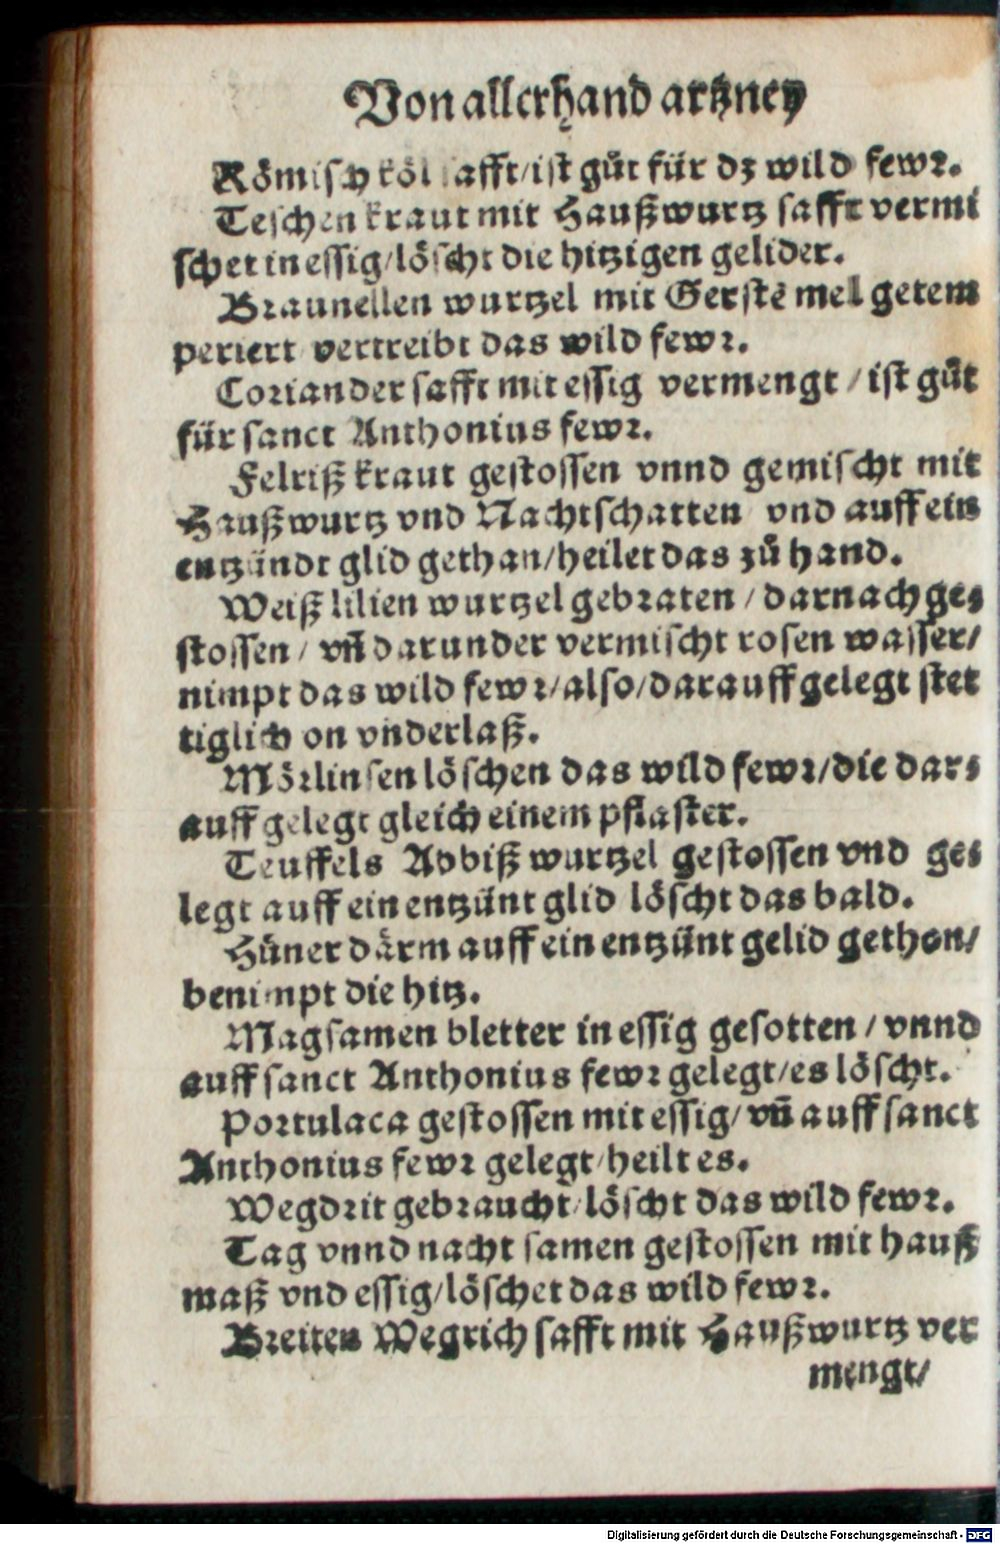 Von allerhand artzney
Römisch köl safft/ist gůt für dz wild fewr.
Teschen kraut mit Haußwurtz safft vermi
schet in essig/löscht die hitzigen gelider.
Braunellen wurtzel mit Gerstē mel getem
periert vertreibt das wild fewr.
Coriander safft mit essig vermengt / ist gůt
für sanct Anthonius fewr.
Felriß kraut gestossen vnnd gemischt mit
Haußwurtz vnd Nachtschatten vnd auff ein
entzündt glid gethan/heilet das zů hand.
Weiß lilien wurtzel gebraten / darnach ge⸗
stossen / vñ darunder vermischt rosen wasser/
nimpt das wild fewr/also/darauff gelegt stet
tiglich on vnderlaß.
Mörlinsen löschen das wild fewr/die dar⸗
auff gelegt gleich einem pflaster.
Teuffels Abbiß wurtzel gestossen vnd ge⸗
legt auff ein entzünt glid löscht das bald.
Hüner därm auff ein entzünt gelid gethon/
benimpt die hitz.
Magsamen bletter in essig gesotten / vnnd
auff sanct Anthonius fewr gelegt/es löscht.
Portulaca gestossen mit essig/ vñ auff sanct
Anthonius fewr gelegt/heilt es.
Wegdrit gebraucht/löscht das wild fewr.
Tag vnnd nacht samen gestossen mit hauß
maß vnd essig/löschet das wild fewr.
Breiten Wegrich safft mit Haußwurtz ver
mengt/
Digitalisierung gefördert durch die Deutsche Forschungsgemeinschaft - DFG